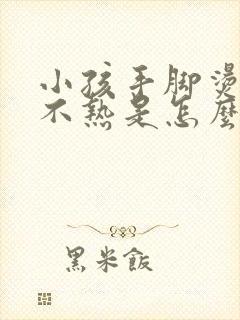 小孩手脚燙
不熱是怎麽
黑米飯